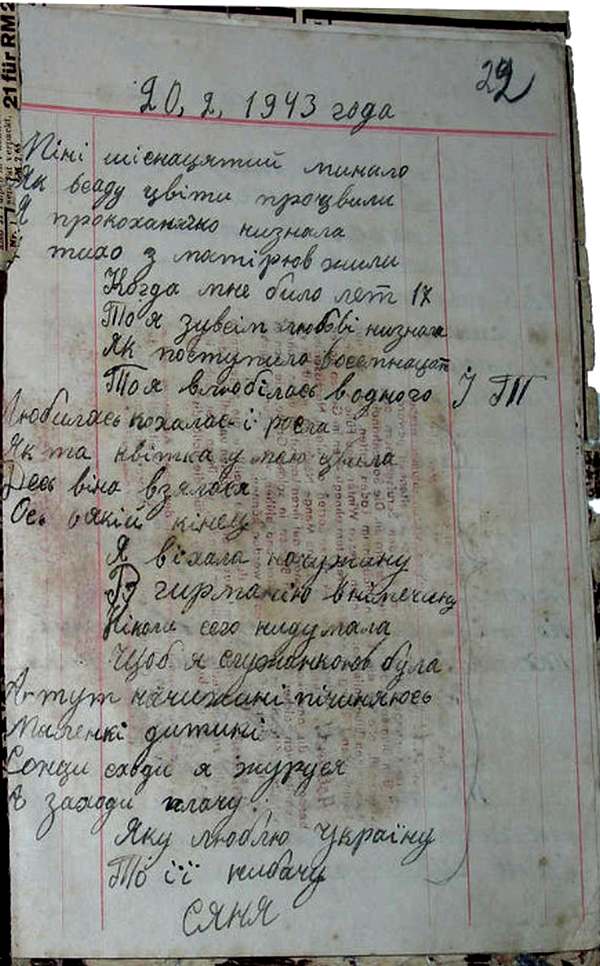 22
20, 2, 1943 года
Міні шіснацятий минало
Як всаду цвіти процвили
Я прокохання низнала
тихо з матірюв жили
Когда мне било лет 17
То я зувсім любві низнала
Як поступило восемнацать
То я влюбілась водного І ТП
Любилась кохалась і росла
Як та квітка у маю цвила
Десь віна взялася
Ось який кінец
Я віхала начужину
В гирманію внімечину
Ніколи сего нидумала
Щоб я служанкоюв була
А тут начижині пічиняюсь
Маленкі дитині
Сонци сходи я журуся
А заходи плачу
Яку люблю Україну
То її нибачу
СЯНЯ
21 für RM 2